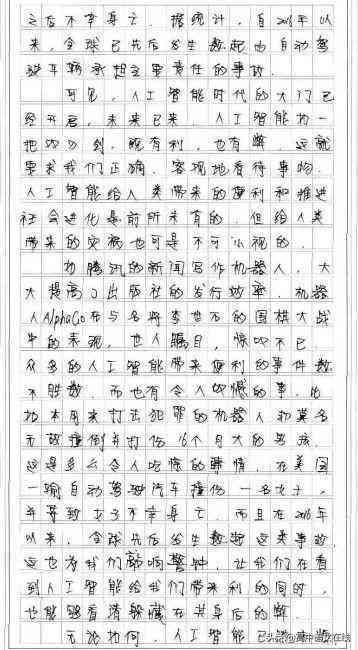 之后不幸身亡。据统计，自2016年以
来，全球已先后发生数起由自动驾
驶车辆承担主要责任的事故。
可见，人工智能时代的大门已
经开启，未来已来，人工智能如一
把双刃剑，既有利，也有弊，这就
要求我们正确、客观地看待事物。
人工智能给人类带来的便利和推进
社会进化是前所未有的，但给人类
带来的灾祸也可是不可小视的。
如腾讯的新闻写作机器人，大
大提高了出版社的发行效率，机器
人AlphaGo在与名将李世石的围棋大战
中的表现，世人瞩目，惊叹不已
众多的人工智能带来便利的事件数
不胜数，而也有令人叹憾的事，比
如本用来打击犯罪的机器人却莫名
无故撞倒并打伤16个月大的男孩，
这是多么令人吃惊的事情，在美国
一辆自动驾驶汽车撞伤一名女子，
并导致女子不幸身亡，而且在2016年
以来，全球先后发生数起这类事故，
这也为我们敲响警钟，让我们在看
到人工智能给我们带来利的同时，
也能够看清躲藏在其身后的弊。
无论如何，人工智能已
头条@高中语文在线